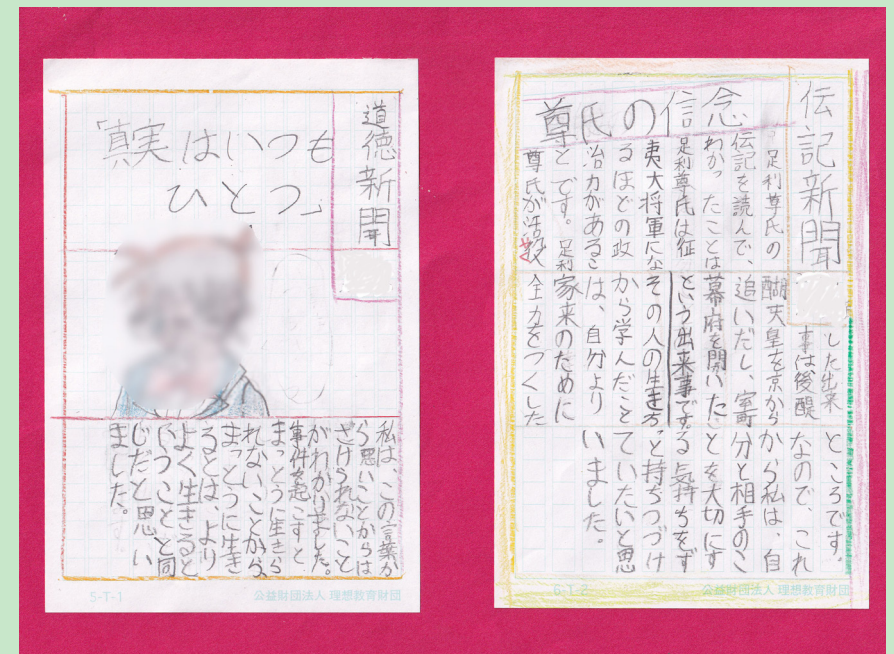 道徳新聞
「真実はいつも
ひとつ」
私は、この言葉か
ら思いことからは
ざけられないこと
がわかりました。
事件を起こすと
まっとうに生きら
れないことから、
まっとうに生き
るとは、より
よく生きると
いうことと同
じだと思い
ました。
5-T-1
公益財団法人 理想教育財団
伝記新聞
尊氏の信念
足利尊氏の
伝記を読んで、
わかったことは
足利尊氏は征
夷大将軍にな
るほどの政
治力があるこ
とです。足利
尊氏が活
した出来
事は後醍
醐天皇を京から
追いだし、室町
幕府を開いた
という出来事です。
その人の生きる
から学んだこと
は、自分より
家来のために
全力をつくした
ところです。
なので、これ
から私は、自
分と相手のこ
とを大切にす
る気持ちをず
っと持ちつづけ
ていたいと思
いました。
6-T-2
公益財団法人 理想教育財団